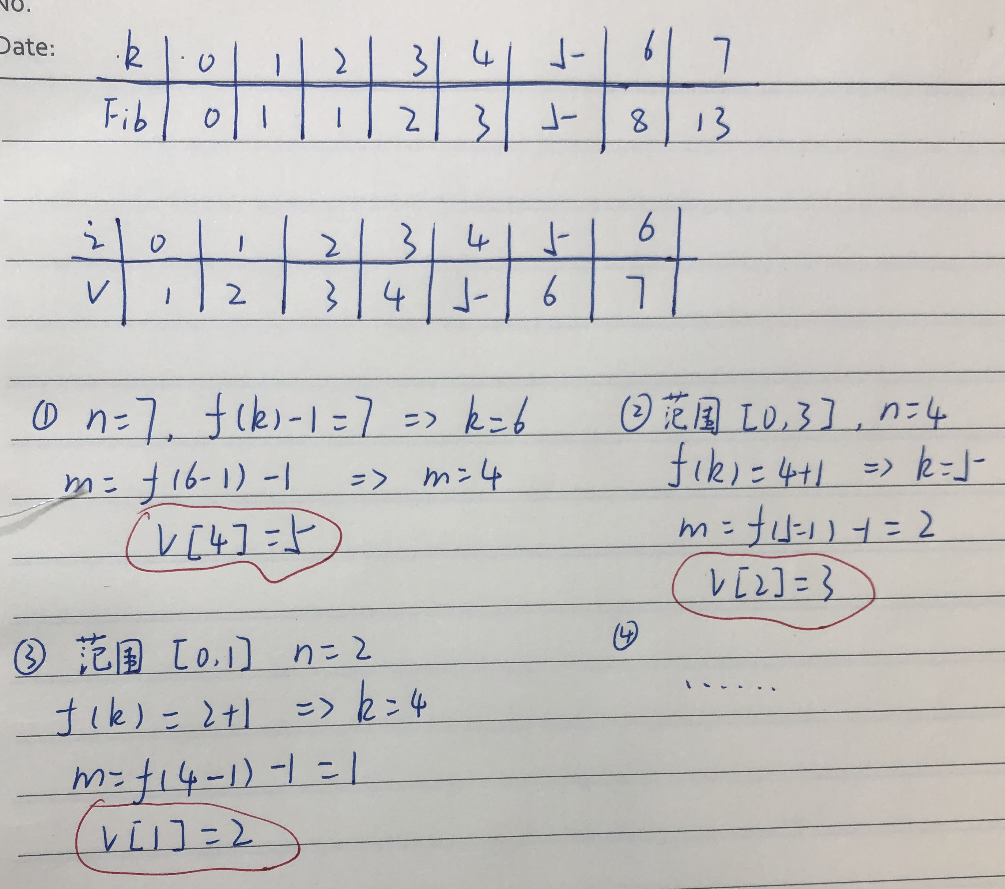 No.
Date:
k 0 1 2 3 4 5 6 7
Fib 0 1 1 2 3 5 8 13
i 0 1 2 3 4 5 6
V 1 2 3 4 5 6 7
① n=7, f(k)-1=7 => k=6
m= f(6-1)-1 => m=4
V[4]=5
② 范围 [0,3], n=4
f(k)=4+1 => k=5
m=f(5-1)-1=2
V[2]=3
③ 范围 [0,1] n=2
f(k)=2+1 => k=4
m=f(4-1)-1=1
V[1]=2
④
......